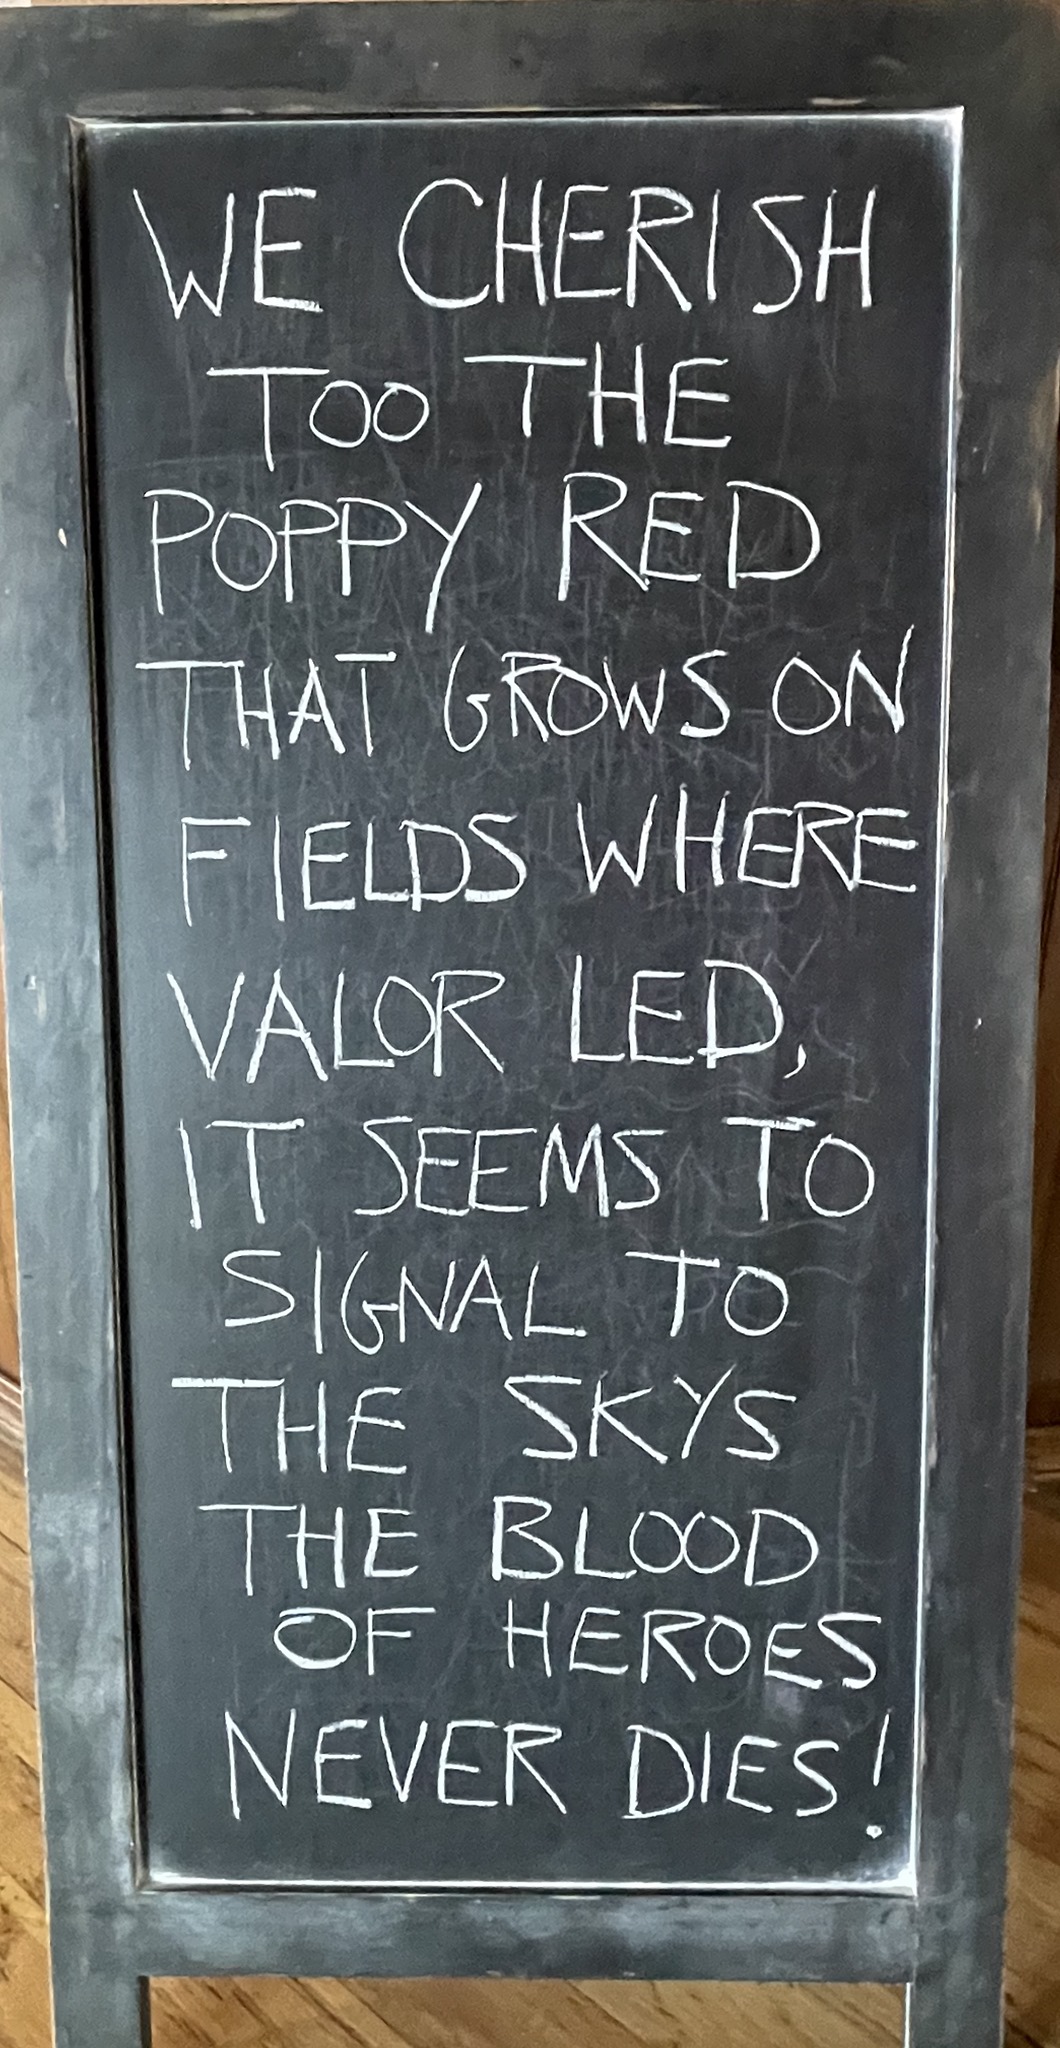 WE CHERISH
TOO THE
POPPY RED
THAT GROWS ON
FIELDS WHERE
VALOR LED,
IT SEEMS TO
SIGNAL TO
THE SKYS
THE BLOOD
OF HEROES
NEVER DIES!